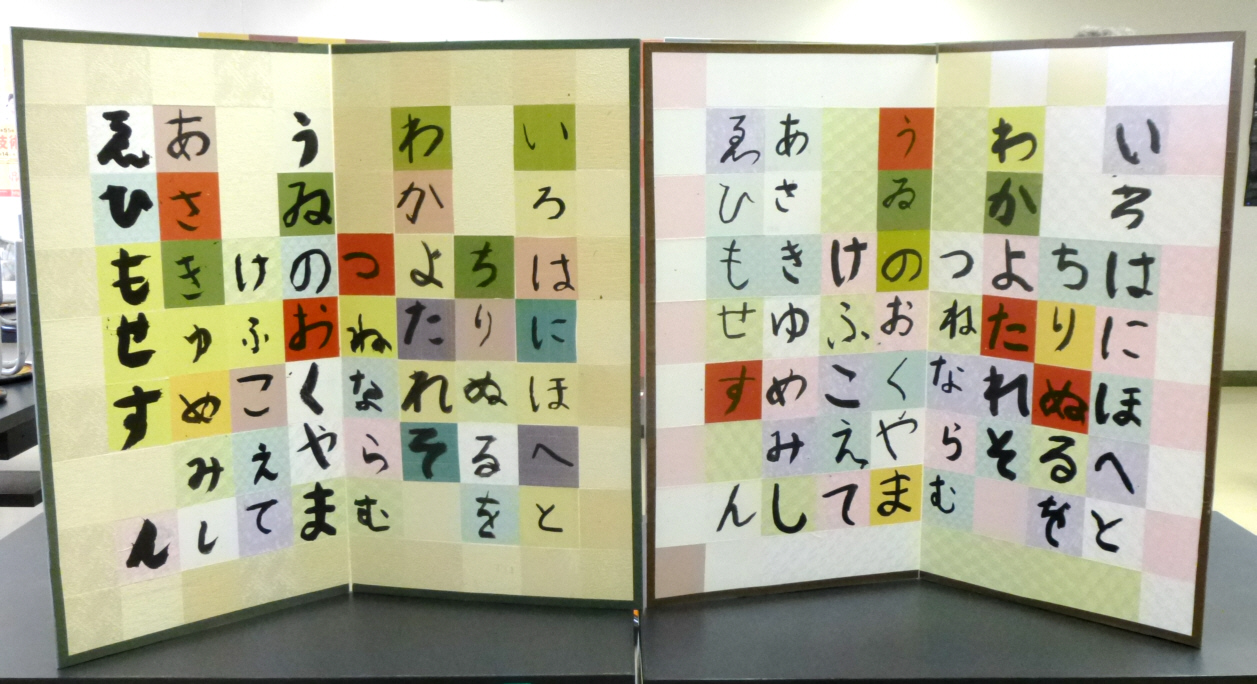 いろはにほへと
ちりぬるを
わかよたれそ
つねならむ
うゐのおくやま
けふこえて
あさきゆめみし
ゑひもせすん
いろはにほへと
ちりぬるを
わかよたれそ
つねならむ
うゐのおくやま
けふこえて
あさきゆめみし
ゑひもせすん